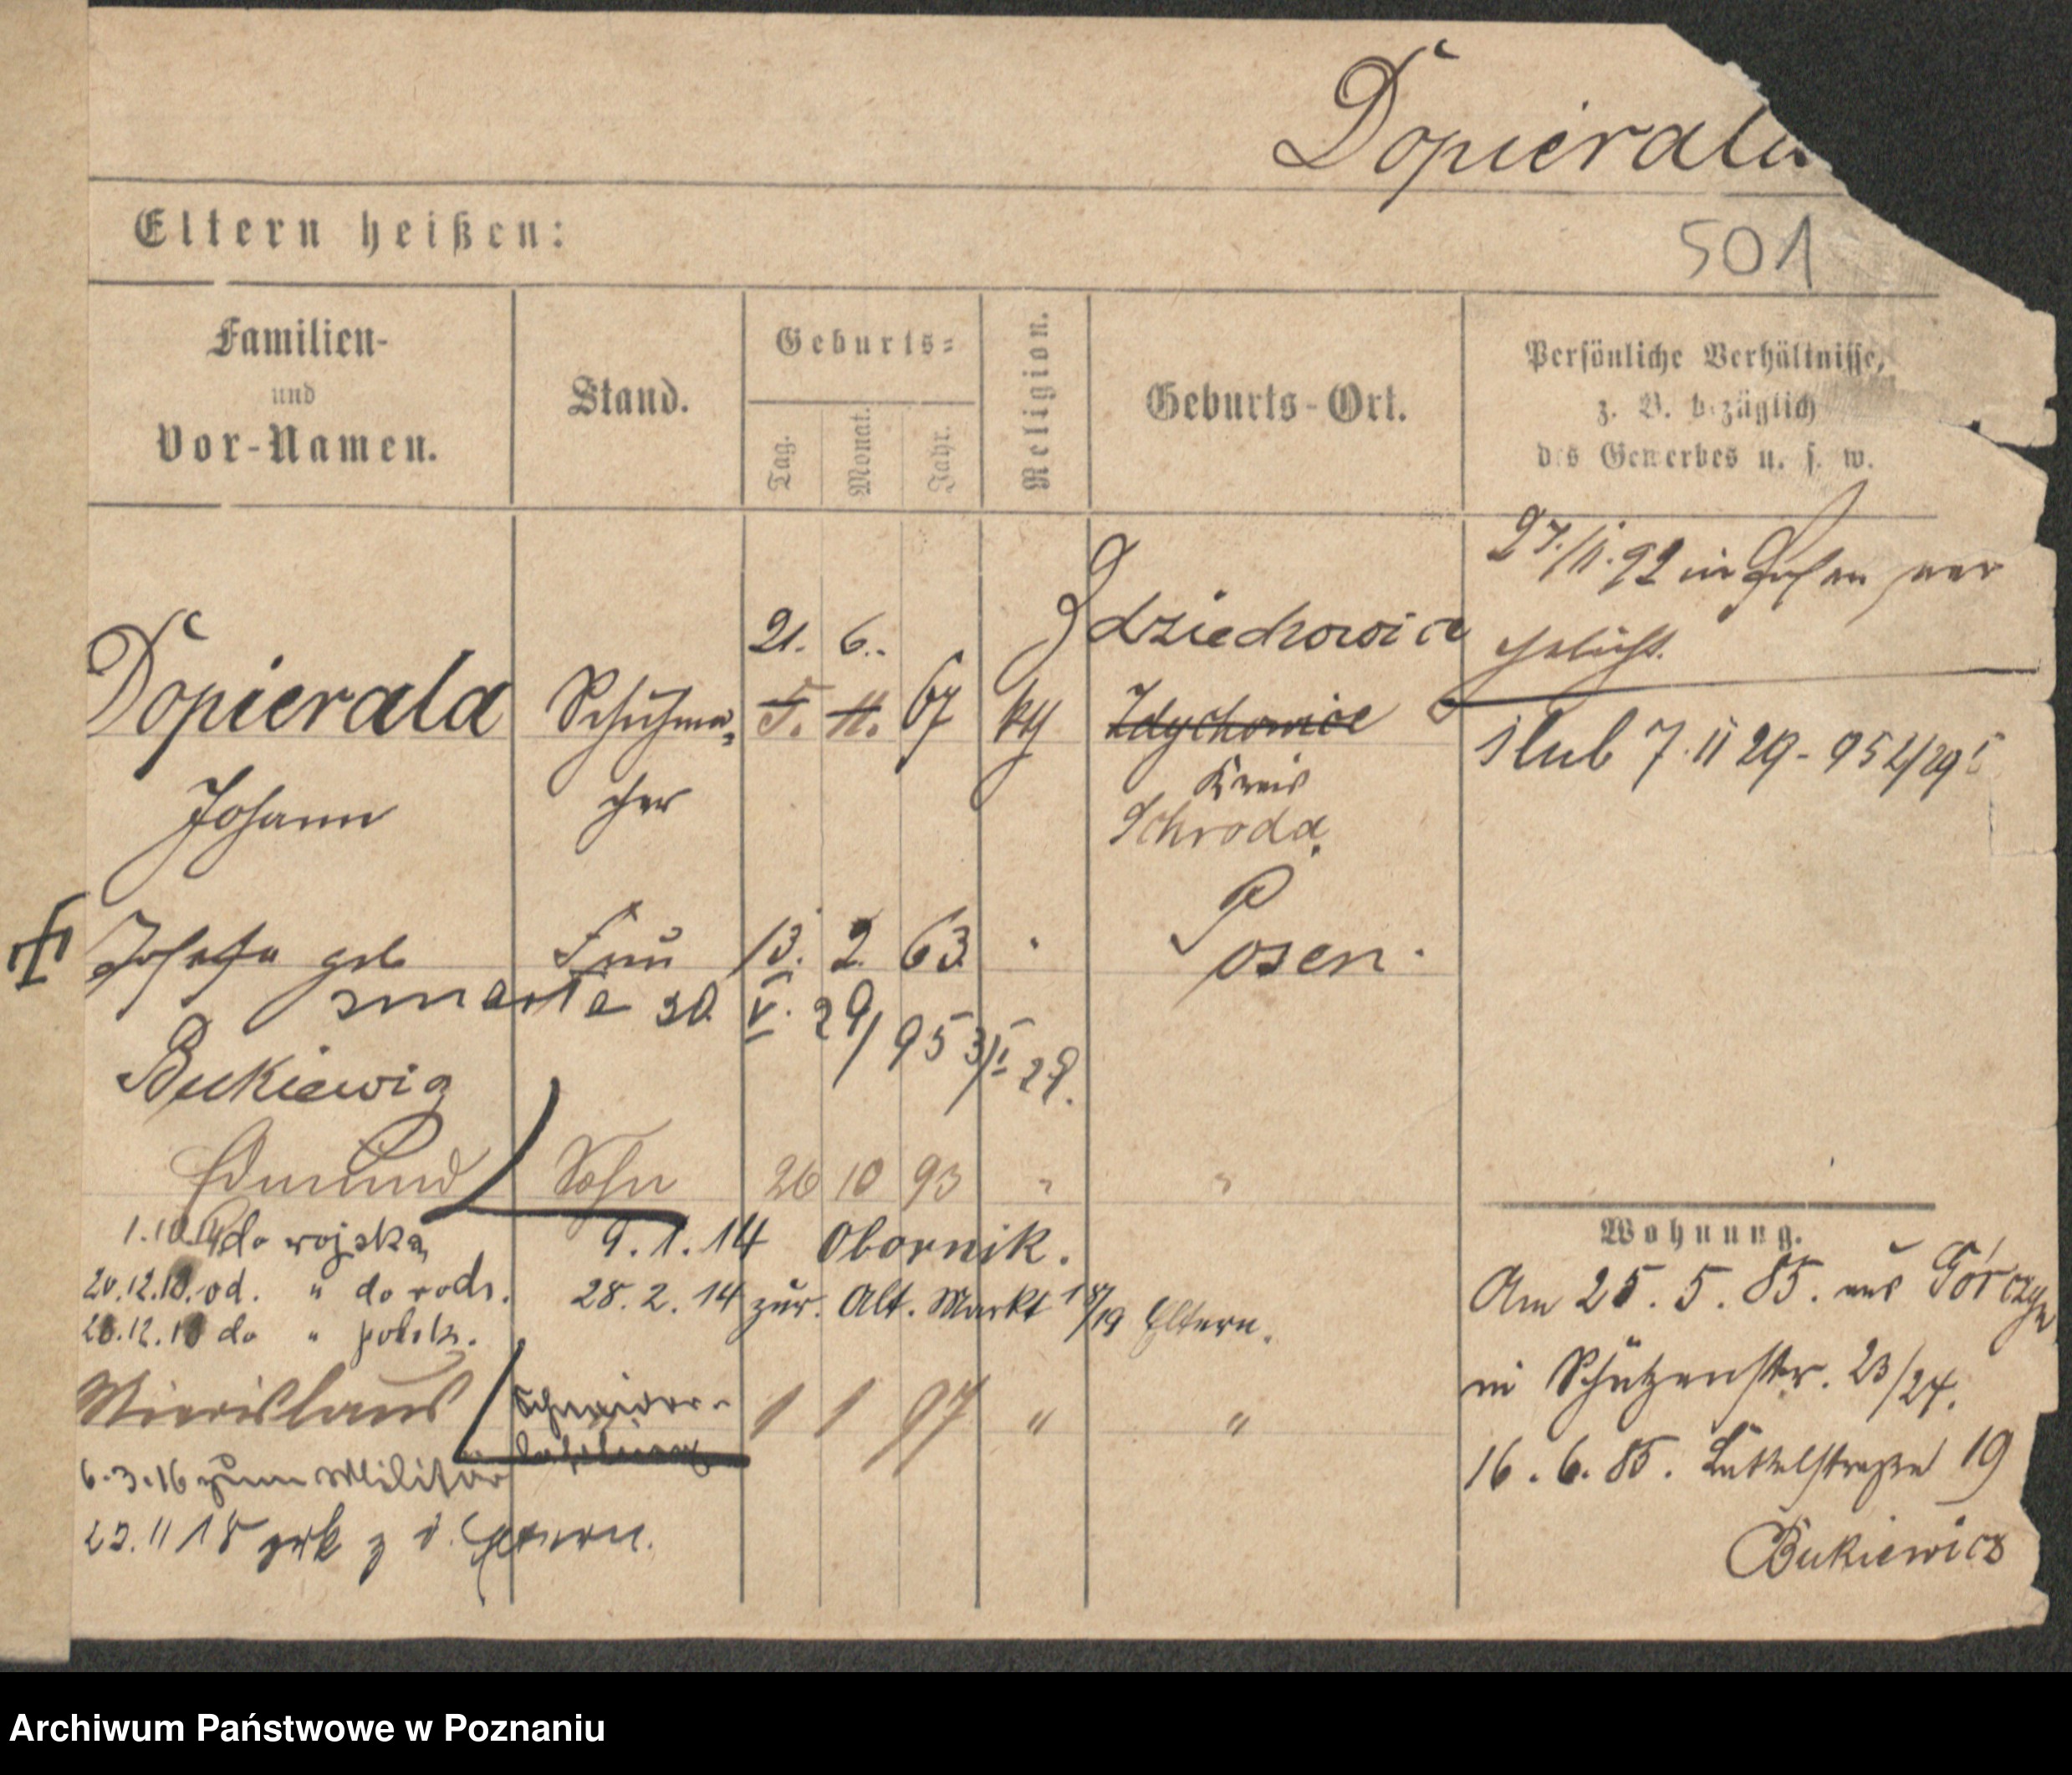 Dopierala
501
Eltern heißen:
Familien-
und
Vor-Namen.
Stand.
Geburts-
Tag.
Monat.
Jahr.
Religion.
Geburts-Ort.
Persönliche Verhältnisse,
z. B. bezüglich
des Gewerbes u. s. w.
27/11.92 in Posen ver
ehelicht.
21. 6. Zdziechowice
Dopierala Schuhma- 5. 11. 67 kg Zdychowice
Johann cher Kreis
Schroda.
ślub 7.II 29 - 952/29
Josefa geb Frau 13. 2. 63 " Posen.
zmarła 30. V. 29/953/I 29.
Bukiewicz
Edmund Sohn 26 10 93 " "
1.10.14 do wojska 9.1.14 Obornik.
20.12.18. od. " do rodz. 28.2.14 zur. Alt. Markt 18/19 Eltern.
20.12.18 do " polsk.
Miecislaus Schneider- 1 1 97 " "
lehrling
6.3.16 zum Militär
23.11 18 zrk z d. Eltern.
Wohnung.
Am 25.5.85. aus Górczyn
in Schützenstr. 23/24.
16.6.85. 19
Bukiewicz
Archiwum Państwowe w Poznaniu